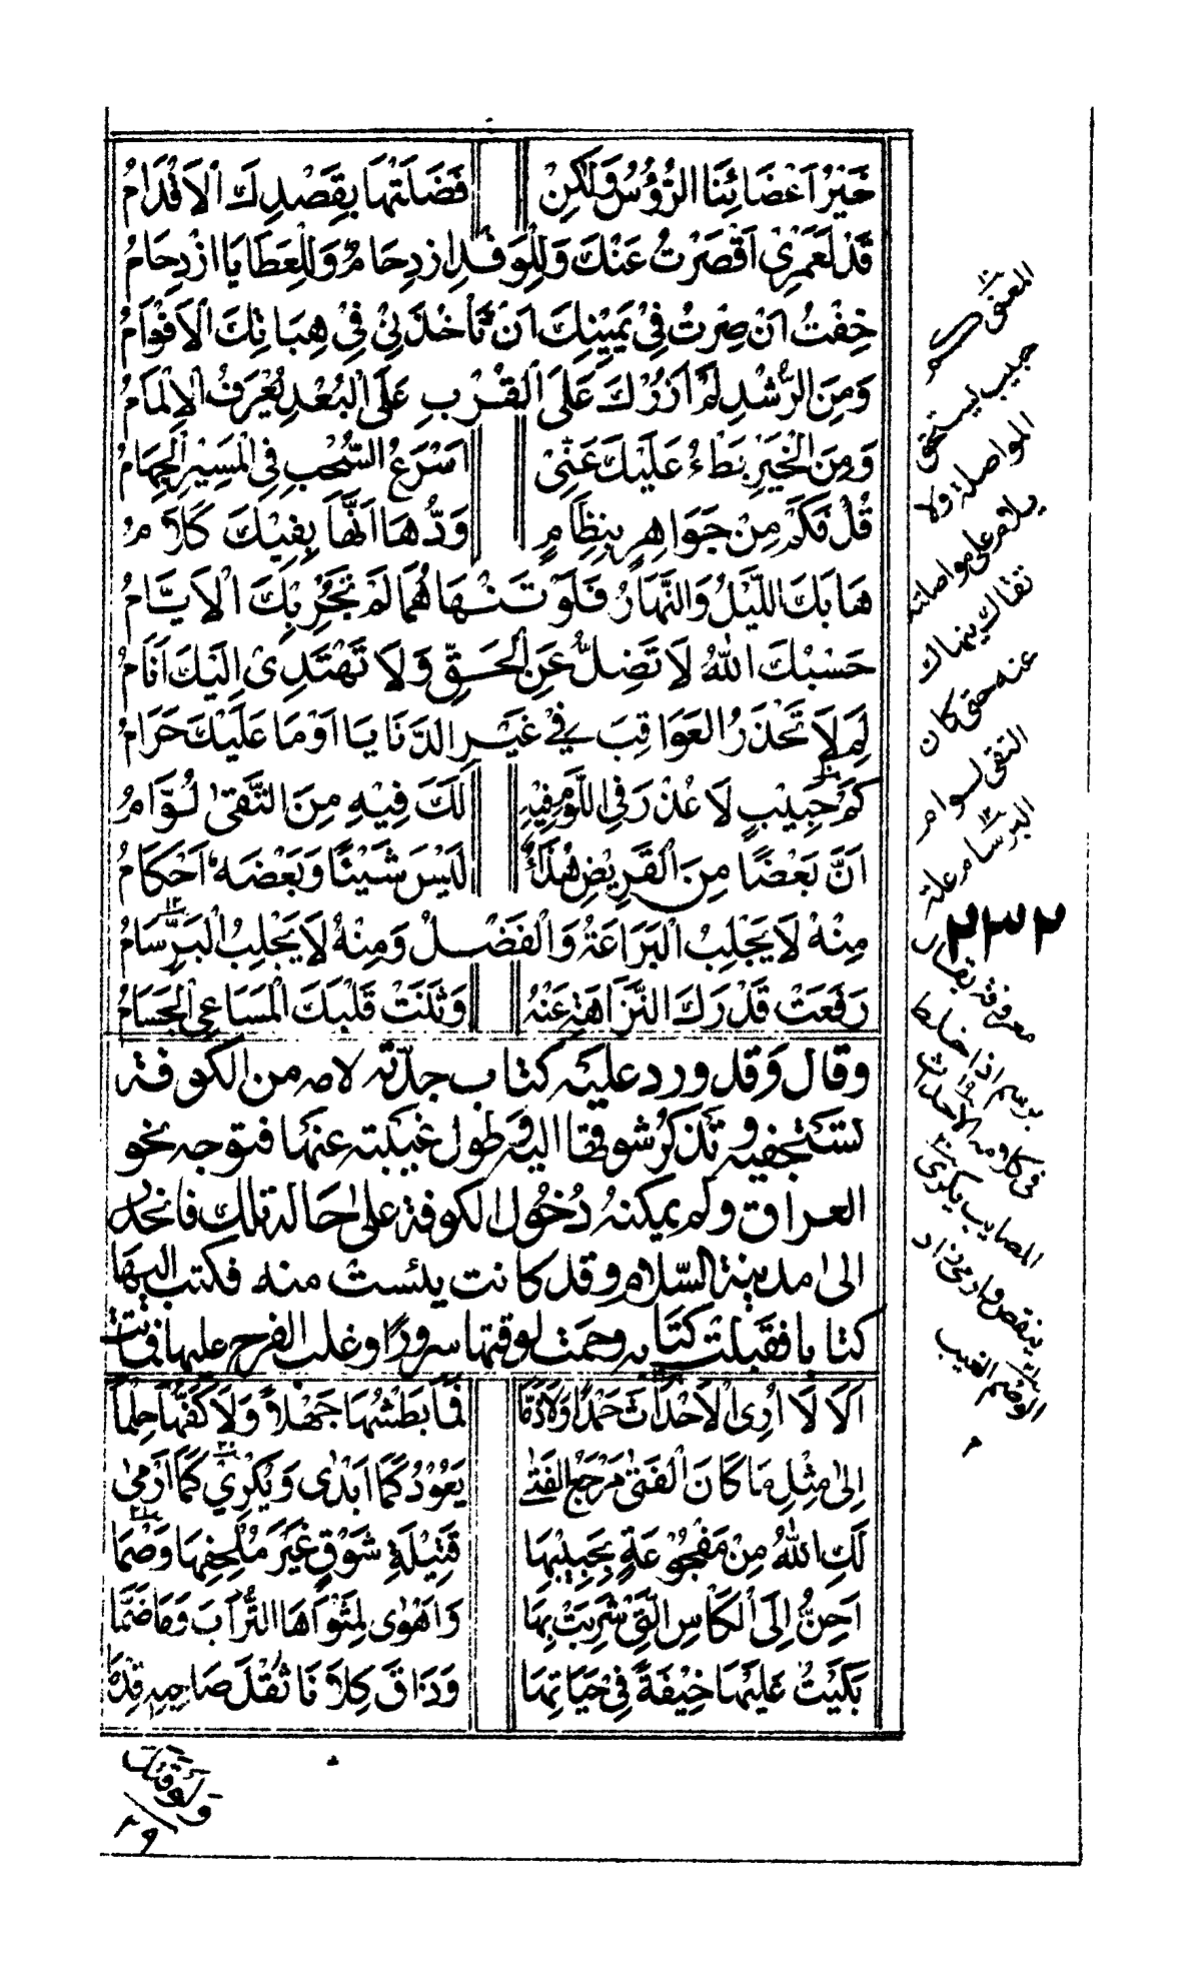 خَيْرُ اَعْضَائِنَا الرُّؤُسُ وَلٰكِنْ فَضَلَتْهَا بِقَصْدِكَ الْاَقْدَامُ
قَدْ لَعَمْرِيْ اَقْصَرْتُ عَنْكَ وَلِلْوَفْدِ ازدِحَامٌ وَلِلْعَطَايَا ازْدِحَامُ
خِفْتُ اَنْ صِرْتُ فِيْ يَمِيْنِكَ اَنْ تَأْخُذَنِيْ فِيْ هِبَاتِكَ الْاَقْوَامُ
وَمِنَ الرُّشْدِ لَمْ اَزُرْكَ عَلَى الْقُرْبِ عَلَى الْبُعْدِ يُعْرَفُ الْاِلْمَامُ
وَمِنَ الْخَيْرِ بَطْءُ سَيْبِكَ عَنِّيْ اَسْرَعُ السُّحْبِ فِي الْمَسِيْرِ الْجِهَامُ
قُلْ فَكَمْ مِنْ جَوَاهِرٍ بِنِظَامٍ وَدُّهَا اَنَّهَا بِفِيْكَ كَلَامُ
هَابَكَ اللَّيْلُ وَالنَّهَارُ فَلَوْ تَنْهَاهُمَا لَمْ تَجُزْ بِكَ الْاَيَّامُ
حَسْبُكَ اللّٰهُ لَا تَضِلُّ عَنِ الْحَقِّ وَلَا تَهْتَدِىْ اِلَيْكَ اَثَامُ
لِمَ لَا تَحْذَرُ الْعَوَاقِبَ فِيْ غَيْرِ الدَّنَايَا اَوْ مَا عَلَيْكَ حَرَامُ
كَمْ حَبِيْبٍ لَا عُذْرَ فِي اللَّوْمِ فِيْهِ لَكَ فِيْهِ مِنَ التُّقىٰ لُوَّامُ
اَنَّ بَعْضًا مِنَ الْقَرِيْضِ هُذَاءٌ لَيْسَ شَيْئًا وَبَعْضَهٗ اَحْكَامُ
مِنْهُ لَا يَجْلِبُ الْبَرَاعَةُ وَالْفَضْلُ وَمِنْهُ لَا يَجْلِبُ الْبَرْسَامُ
رَفَعَتْ قَدْرَكَ النَّزَاهَةُ عَنْهُ وَثَنَتْ قَلْبَكَ الْمَسَاعِى الْجِسَامُ
وقال وَقد ورد عليه كتاب جدّته لامه من الكوفة
تستجفيه و تذكر شوقها اليه و طول غيبته عنها فتوجه نحو
العراق ولم يمكنه دُخُول الكوفة على حالة تلك فانحدر
الىٰ مدينة السّلام وقد كانت يئست منه فكتب اليها
كتابا فقبلت كتابه وحمت لوقتها سرورًا وغلب الفرح عليها
اَلَا لَا اُرِى الْاَحْدَاثَ حَمْدًا وَلَا ذَمَّا فَمَا بَطْشُهَا جَهْلًا وَلَا كَفُّهَا حِلْمَا
اِلىٰ مِثْلِ مَا كَانَ الْفَتىٰ مَرْجَعُ الفَتىٰ يَعُوْدُ كَمَا اَبْدٰى وَيَكْرِيْ كَمَا اَرْمىٰ
لَكِ اللّٰهُ مِنْ مَفْجُوْعَةٍ بِحَبِيْبِهَا قَتِيْلَةِ شَوْقٍ غَيْرَ مُلْحِقِهَا وَصْمَا
اَحِنُّ اِلَى الْكَأْسِ الَّتِيْ شَرِبَتْ بِهَا وَاَهْوٰى لِمَثْوَاهَا التُّرَابَ وَمَا ضَمَّا
بَكَيْتُ عَلَيْهَا خِيْفَةً فِيْ حَيَاتِهَا وَذَاقَ كِلَانَا ثُكْلَ صَاحِبِهٖ قِدْمَا
المعنى كم
حبيب يستحق
المواصلة ولا
يلام على مواصلته
تقاك ينهاك
عنه حتى كان
التقى لوام
البرسام علة
٢٣٢
معروفة يقال
برسم اذا خلط
فى كلامه الاحداث
المصايب يكرى
ينقص وارمى زاد
الوصم العيب
١٢